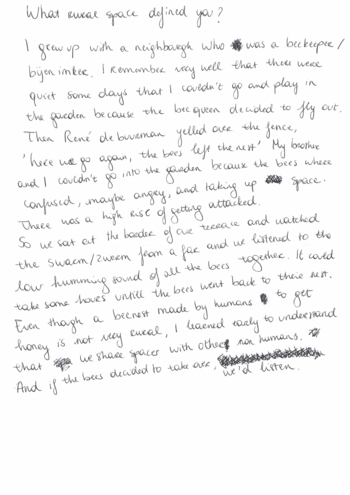 What rural space defined you?
I grew up with a neighbargh who was a beekeeper/
bijen imker. I remember very well that there were
quiet some days that I couldn't go and play in
the garden because the bee queen decided to fly out.
Then René de buurman yelled over the fence,
'here we go again, the bees left the nest' My brother
and I couldn't go into the garden because the bees where
confused, maybe angry, and taking up space.
There was a high risk of getting attacked.
So we sat at the border of our terrace and watched
the swarm/zwerm from a far and we listened to the
low humming sound of all the bees together. It could
take some hours untill the bees went back to their nest.
Even though a beenest made by humans to get
honey is not very rural, I learned early to understand
that we share spaces with other non humans.
And if the bees decided to take over, we'd listen.